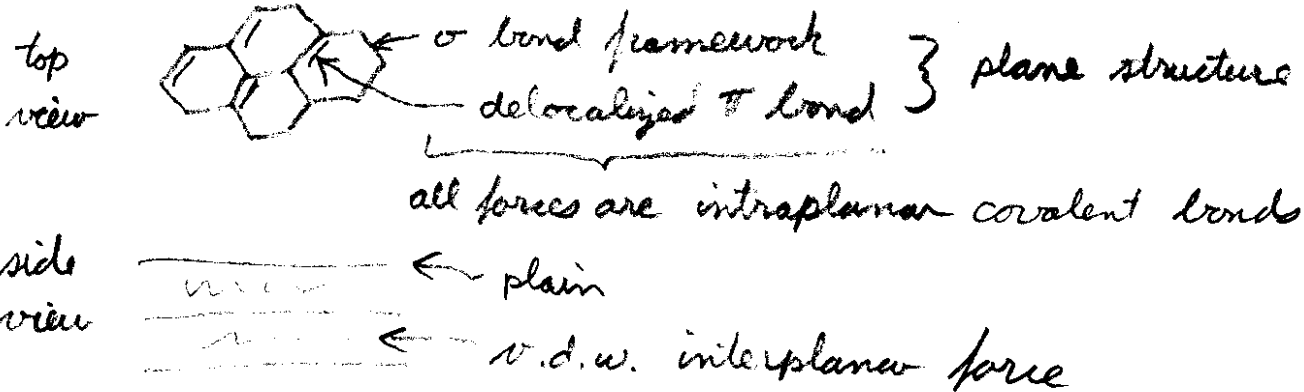 top view
σ bond framework
delocalized π bond
} plane structure
all forces are intraplanar covalent bonds
side view
plain
v.d.w. interplanar force